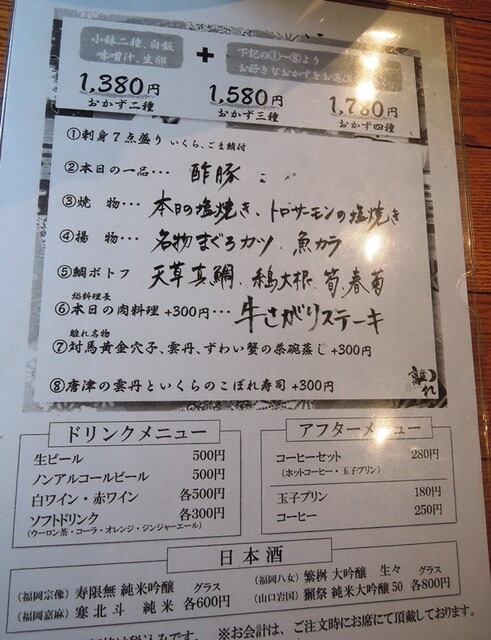 小鉢二種、白飯
味噌汁、生卵
+
下記の①~⑧より
お好きなおかずをお選び
1,380円
おかず二種
1,580円
おかず三種
1,780円
おかず四種
①刺身7点盛り いくら、ごま鯖付
②本日の一品… 酢豚
③焼 物… 本日の塩焼き、トロサーモンの塩焼き
④揚 物… 名物まぐろカツ、魚カラ
⑤鯛ポトフ 天草真鯛、糸島大根、筍、春菊
総料理長
⑥本日の肉料理 +300円… 牛さがりステーキ
離れ名物
⑦対馬黄金穴子、雲丹、ずわい蟹の茶碗蒸し +300円
⑧唐津の雲丹といくらのこぼれ寿司 +300円
離れ
ドリンクメニュー
生ビール 500円
ノンアルコールビール 500円
白ワイン・赤ワイン 各500円
ソフトドリンク 各300円
(ウーロン茶・コーラ・オレンジ・ジンジャーエール)
アフターメニュー
コーヒーセット 280円
(ホットコーヒー・玉子プリン)
玉子プリン 180円
コーヒー 250円
日本酒
(福岡宗像) 寿限無 純米吟醸 グラス
(福岡嘉麻) 寒北斗 純米 各600円
(福岡八女) 繁桝 大吟醸 生々 グラス
(山口岩国) 獺祭 純米大吟醸50 各800円
税込みです。 ※お会計は、ご注文時にお席にて頂戴しております。